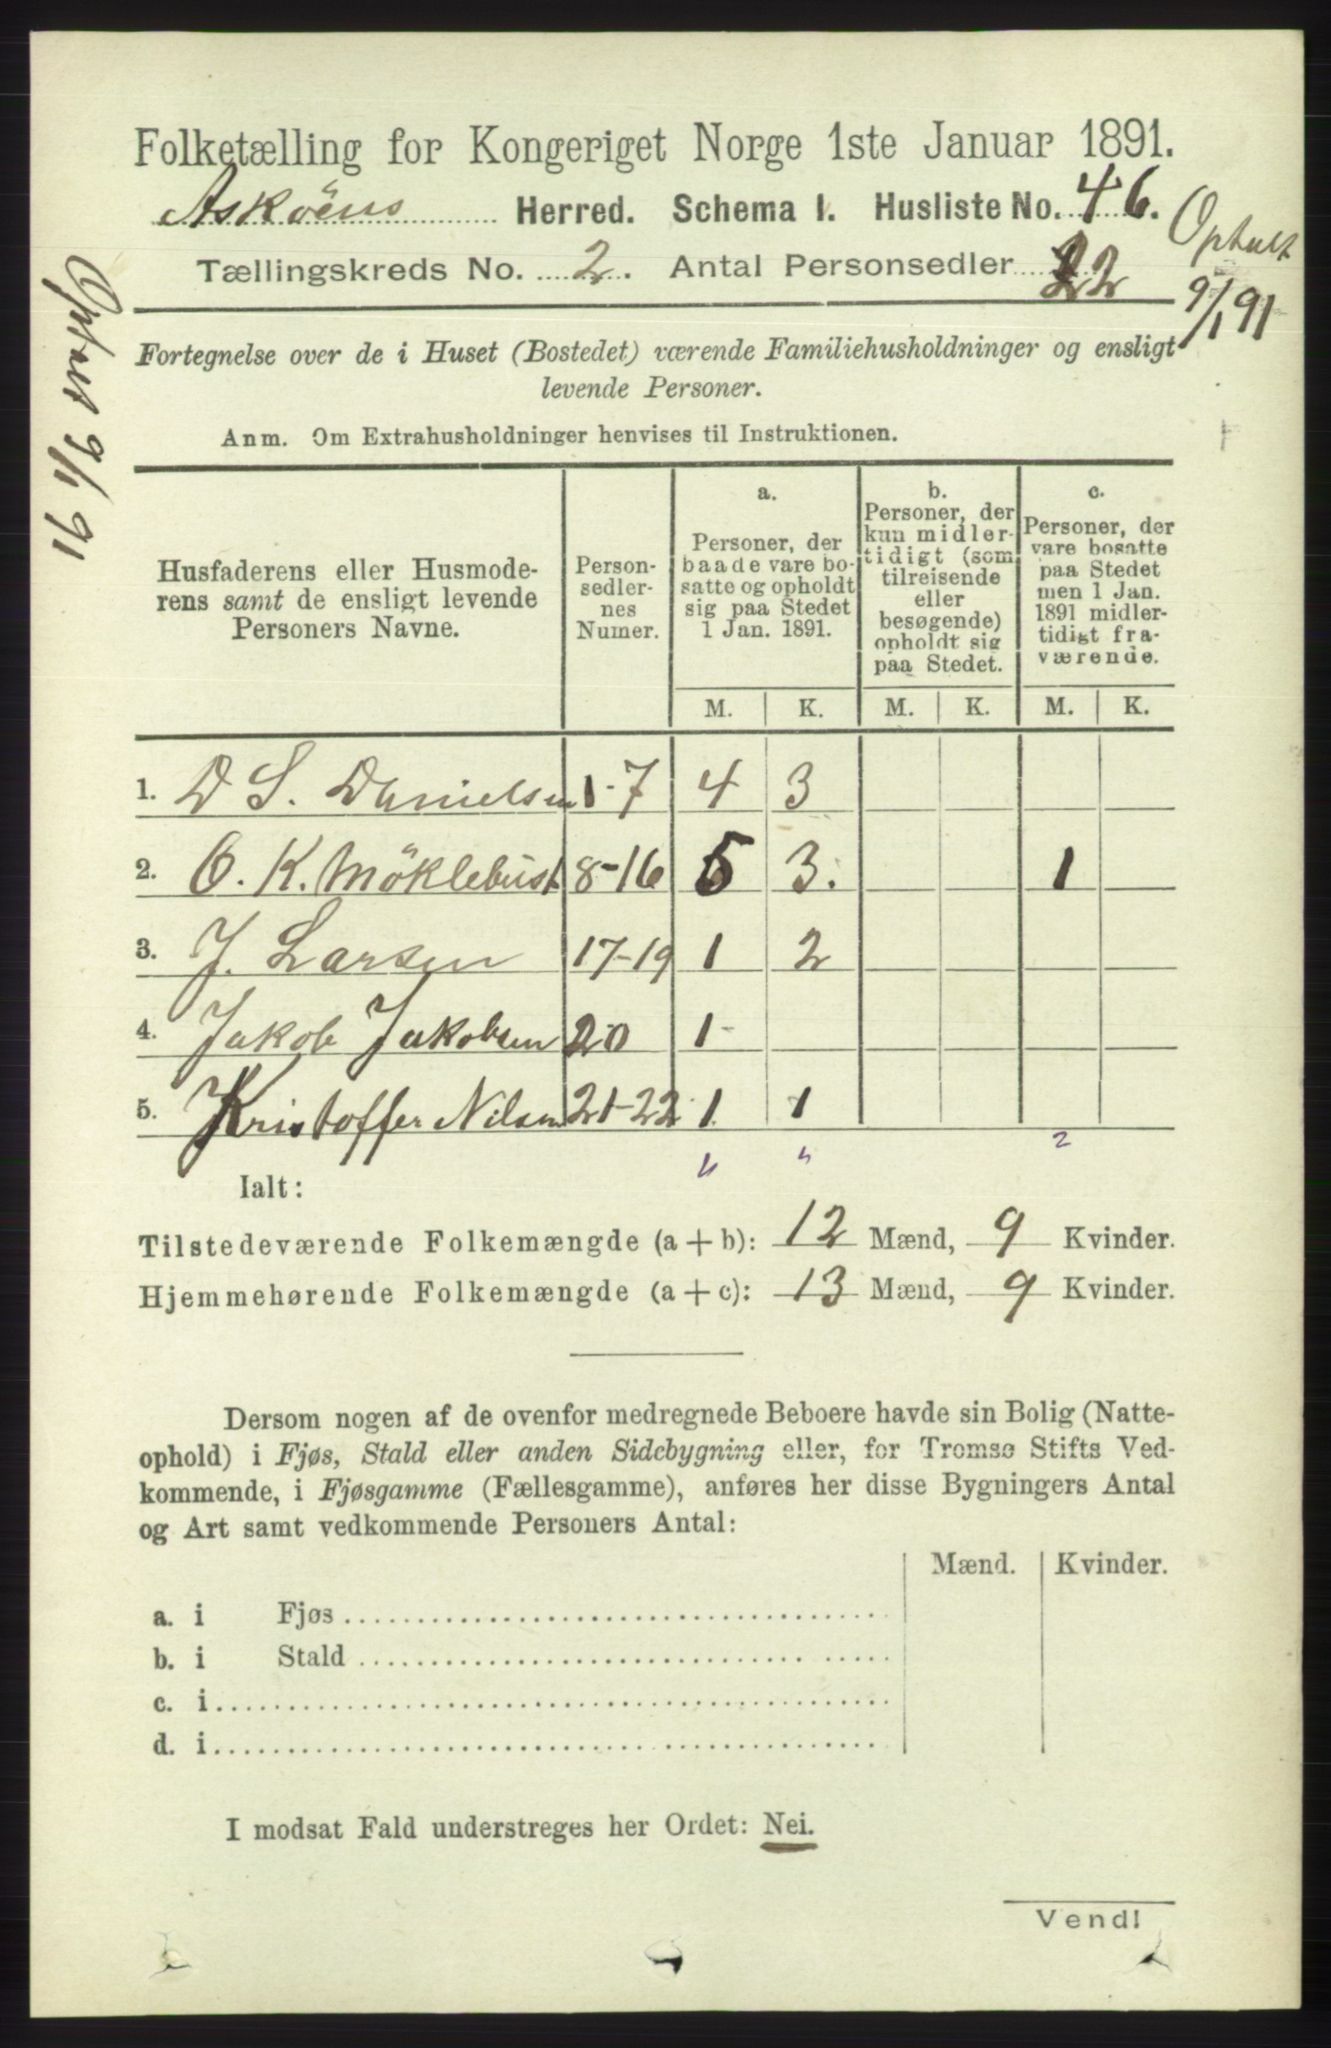 Folketælling for Kongeriget Norge 1ste Januar 1891.
Asköens Herred. Schema I. Husliste No. 46.
Tællingskreds No. 2. Antal Personsedler 22
9/1 91
9/1 91
Fortegnelse over de i Huset (Bostedet) værende Familiehusholdninger og ensligt
levende Personer.
Anm. Om Extrahusholdninger henvises til Instruktionen.
Husfaderens eller Husmode-
rens samt de ensligt levende
Personers Navne.
Person-
sedler-
nes
Numer.
a.
Personer, der
baade vare bo-
satte og opholdt
sig paa Stedet
1 Jan. 1891.
b.
Personer, der
kun midler-
tidigt (som
tilreisende
eller
besøgende)
opholdt sig
paa Stedet.
c.
Personer, der
vare bosatte
paa Stedet
men 1 Jan.
1891 midler-
tidigt fra-
værende.
M. K. M. K. M. K.
1. D S. Danielsen 1-7 4 3
2. O. K. Möklebust 8-16 5 3. 1
3. J. Larsen 17-19 1 2
4. Jakob Jakobsen 20 1
5. Kristoffer Nilsen 21-22 1 1
2
Ialt:
Tilstedeværende Folkemængde (a + b): 12 Mænd, 9 Kvinder.
Hjemmehørende Folkemængde (a + c): 13 Mænd, 9 Kvinder.
Dersom nogen af de ovenfor medregnede Beboere havde sin Bolig (Natte-
ophold) i Fjøs, Stald eller anden Sidebygning eller, for Tromsø Stifts Ved-
kommende, i Fjøsgamme (Fællesgamme), anføres her disse Bygningers Antal
og Art samt vedkommende Personers Antal:
Mænd. Kvinder.
a. i Fjøs
b. i Stald
c. i
d. i
I modsat Fald understreges her Ordet: Nei.
Vend!